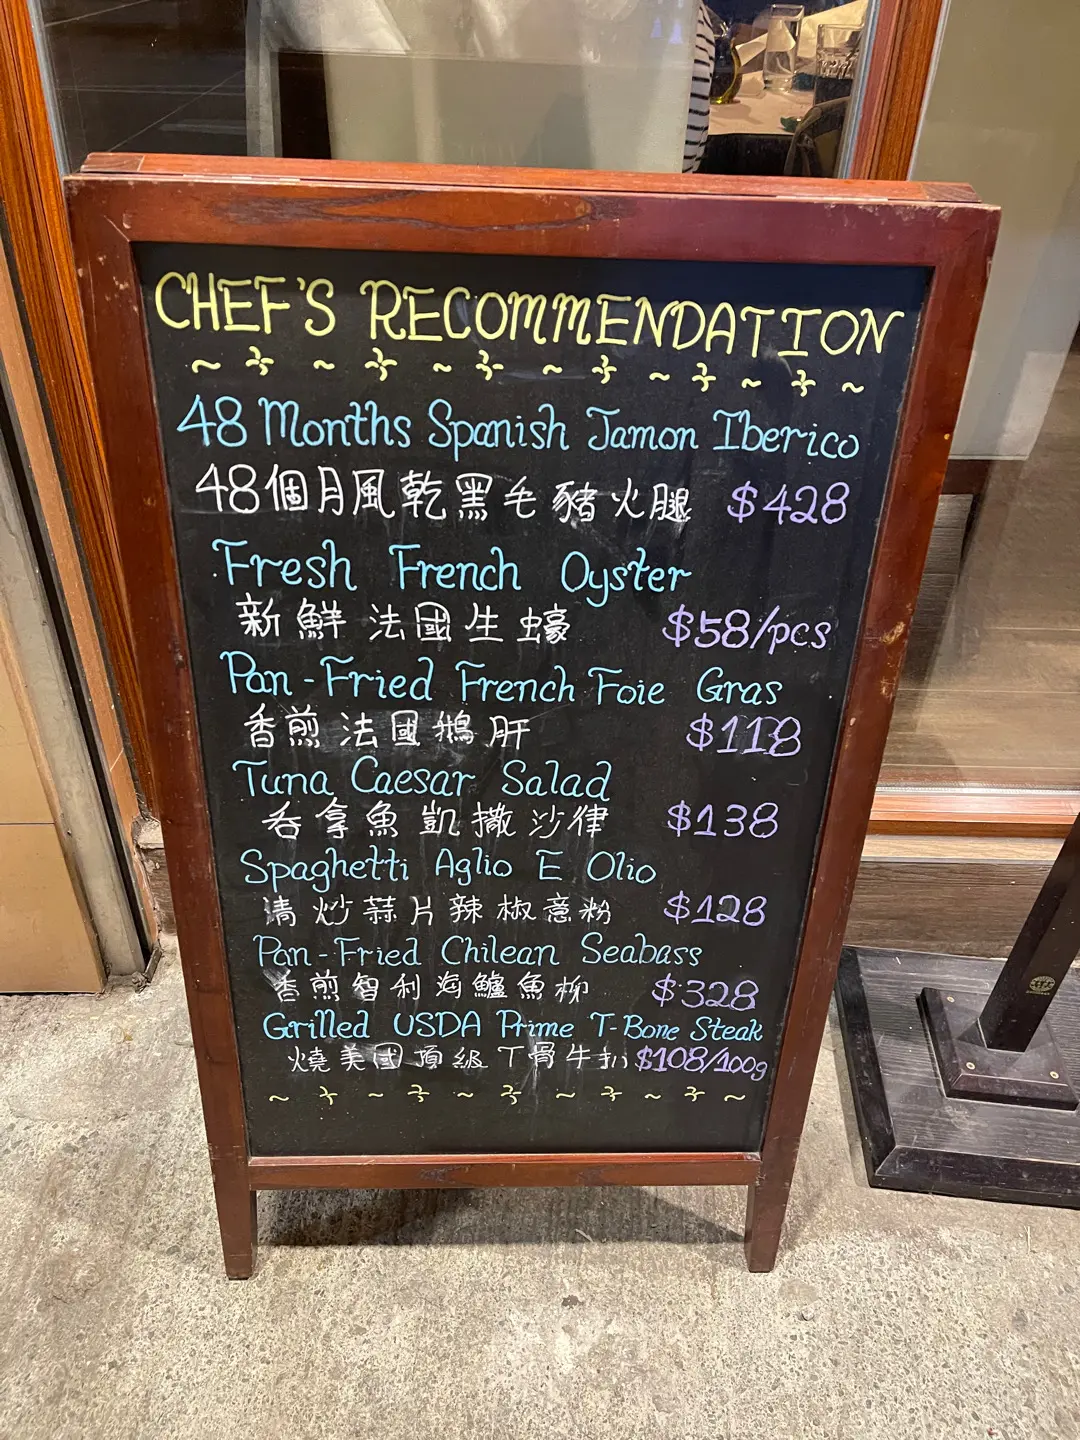 CHEF'S RECOMMENDATION
48 Months Spanish Jamon Iberico
48個月風乾黑毛豬火腿 $428
Fresh French Oyster
新鮮法國生蠔 $58/pcs
Pan-Fried French Foie Gras
香煎法國鵝肝 $118
Tuna Caesar Salad
吞拿魚凱撒沙律 $138
Spaghetti Aglio E Olio
清炒蒜片辣椒意粉 $128
Pan-Fried Chilean Seabass
香煎智利海鱸魚柳 $328
Grilled USDA Prime T-Bone Steak
燒美國頂級丁骨牛扒 $108/100g